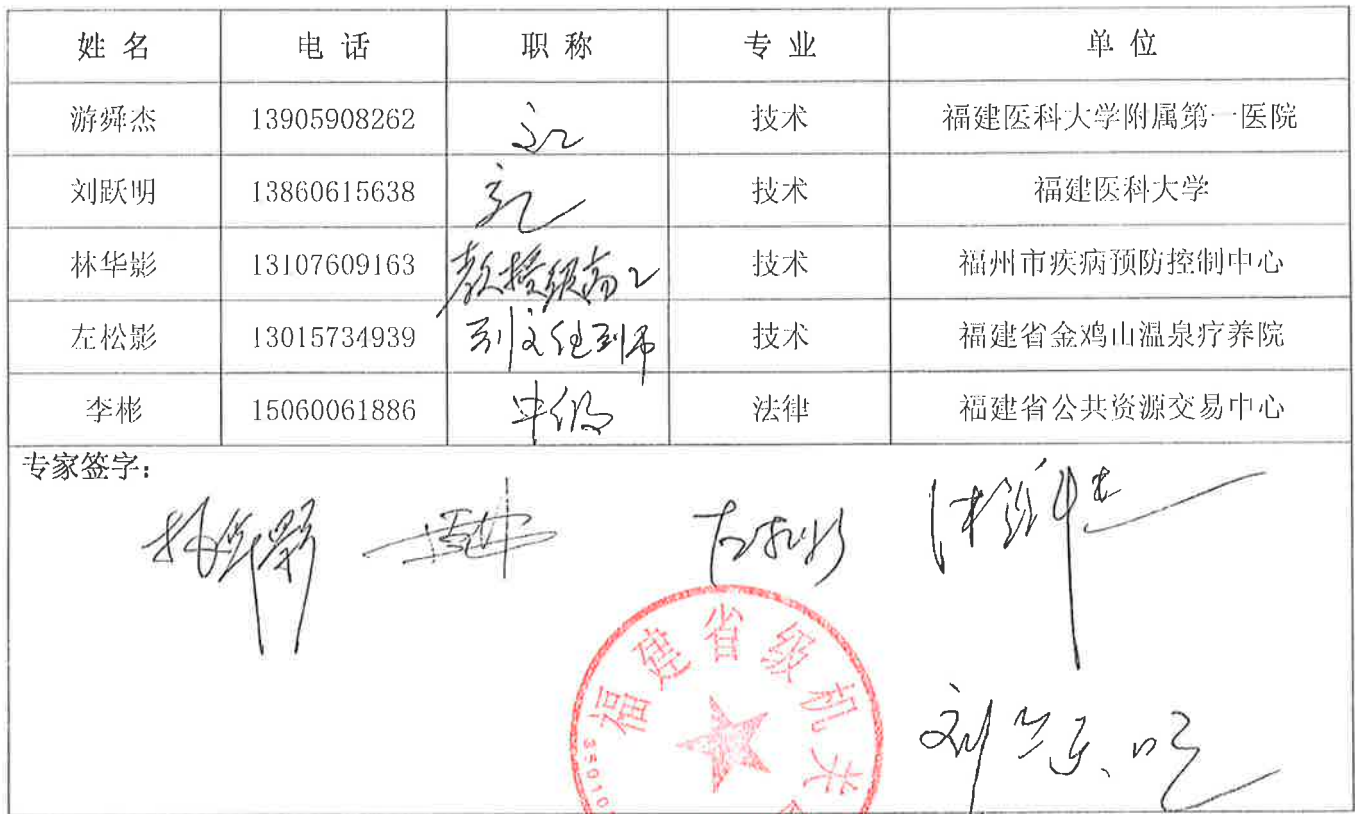 姓 名 电 话 职 称 专 业 单 位
游舜杰 13905908262 技术 福建医科大学附属第一医院
刘跃明 13860615638 技术 福建医科大学
林华影 13107609163 教授级高工 技术 福州市疾病预防控制中心
左松影 13015734939 副主任 技术 福建省金鸡山温泉疗养院
李彬 15060061886 中级 法律 福建省公共资源交易中心
专家签字:
林华影 左松影 游舜杰
刘跃明
福建省级机关
35010